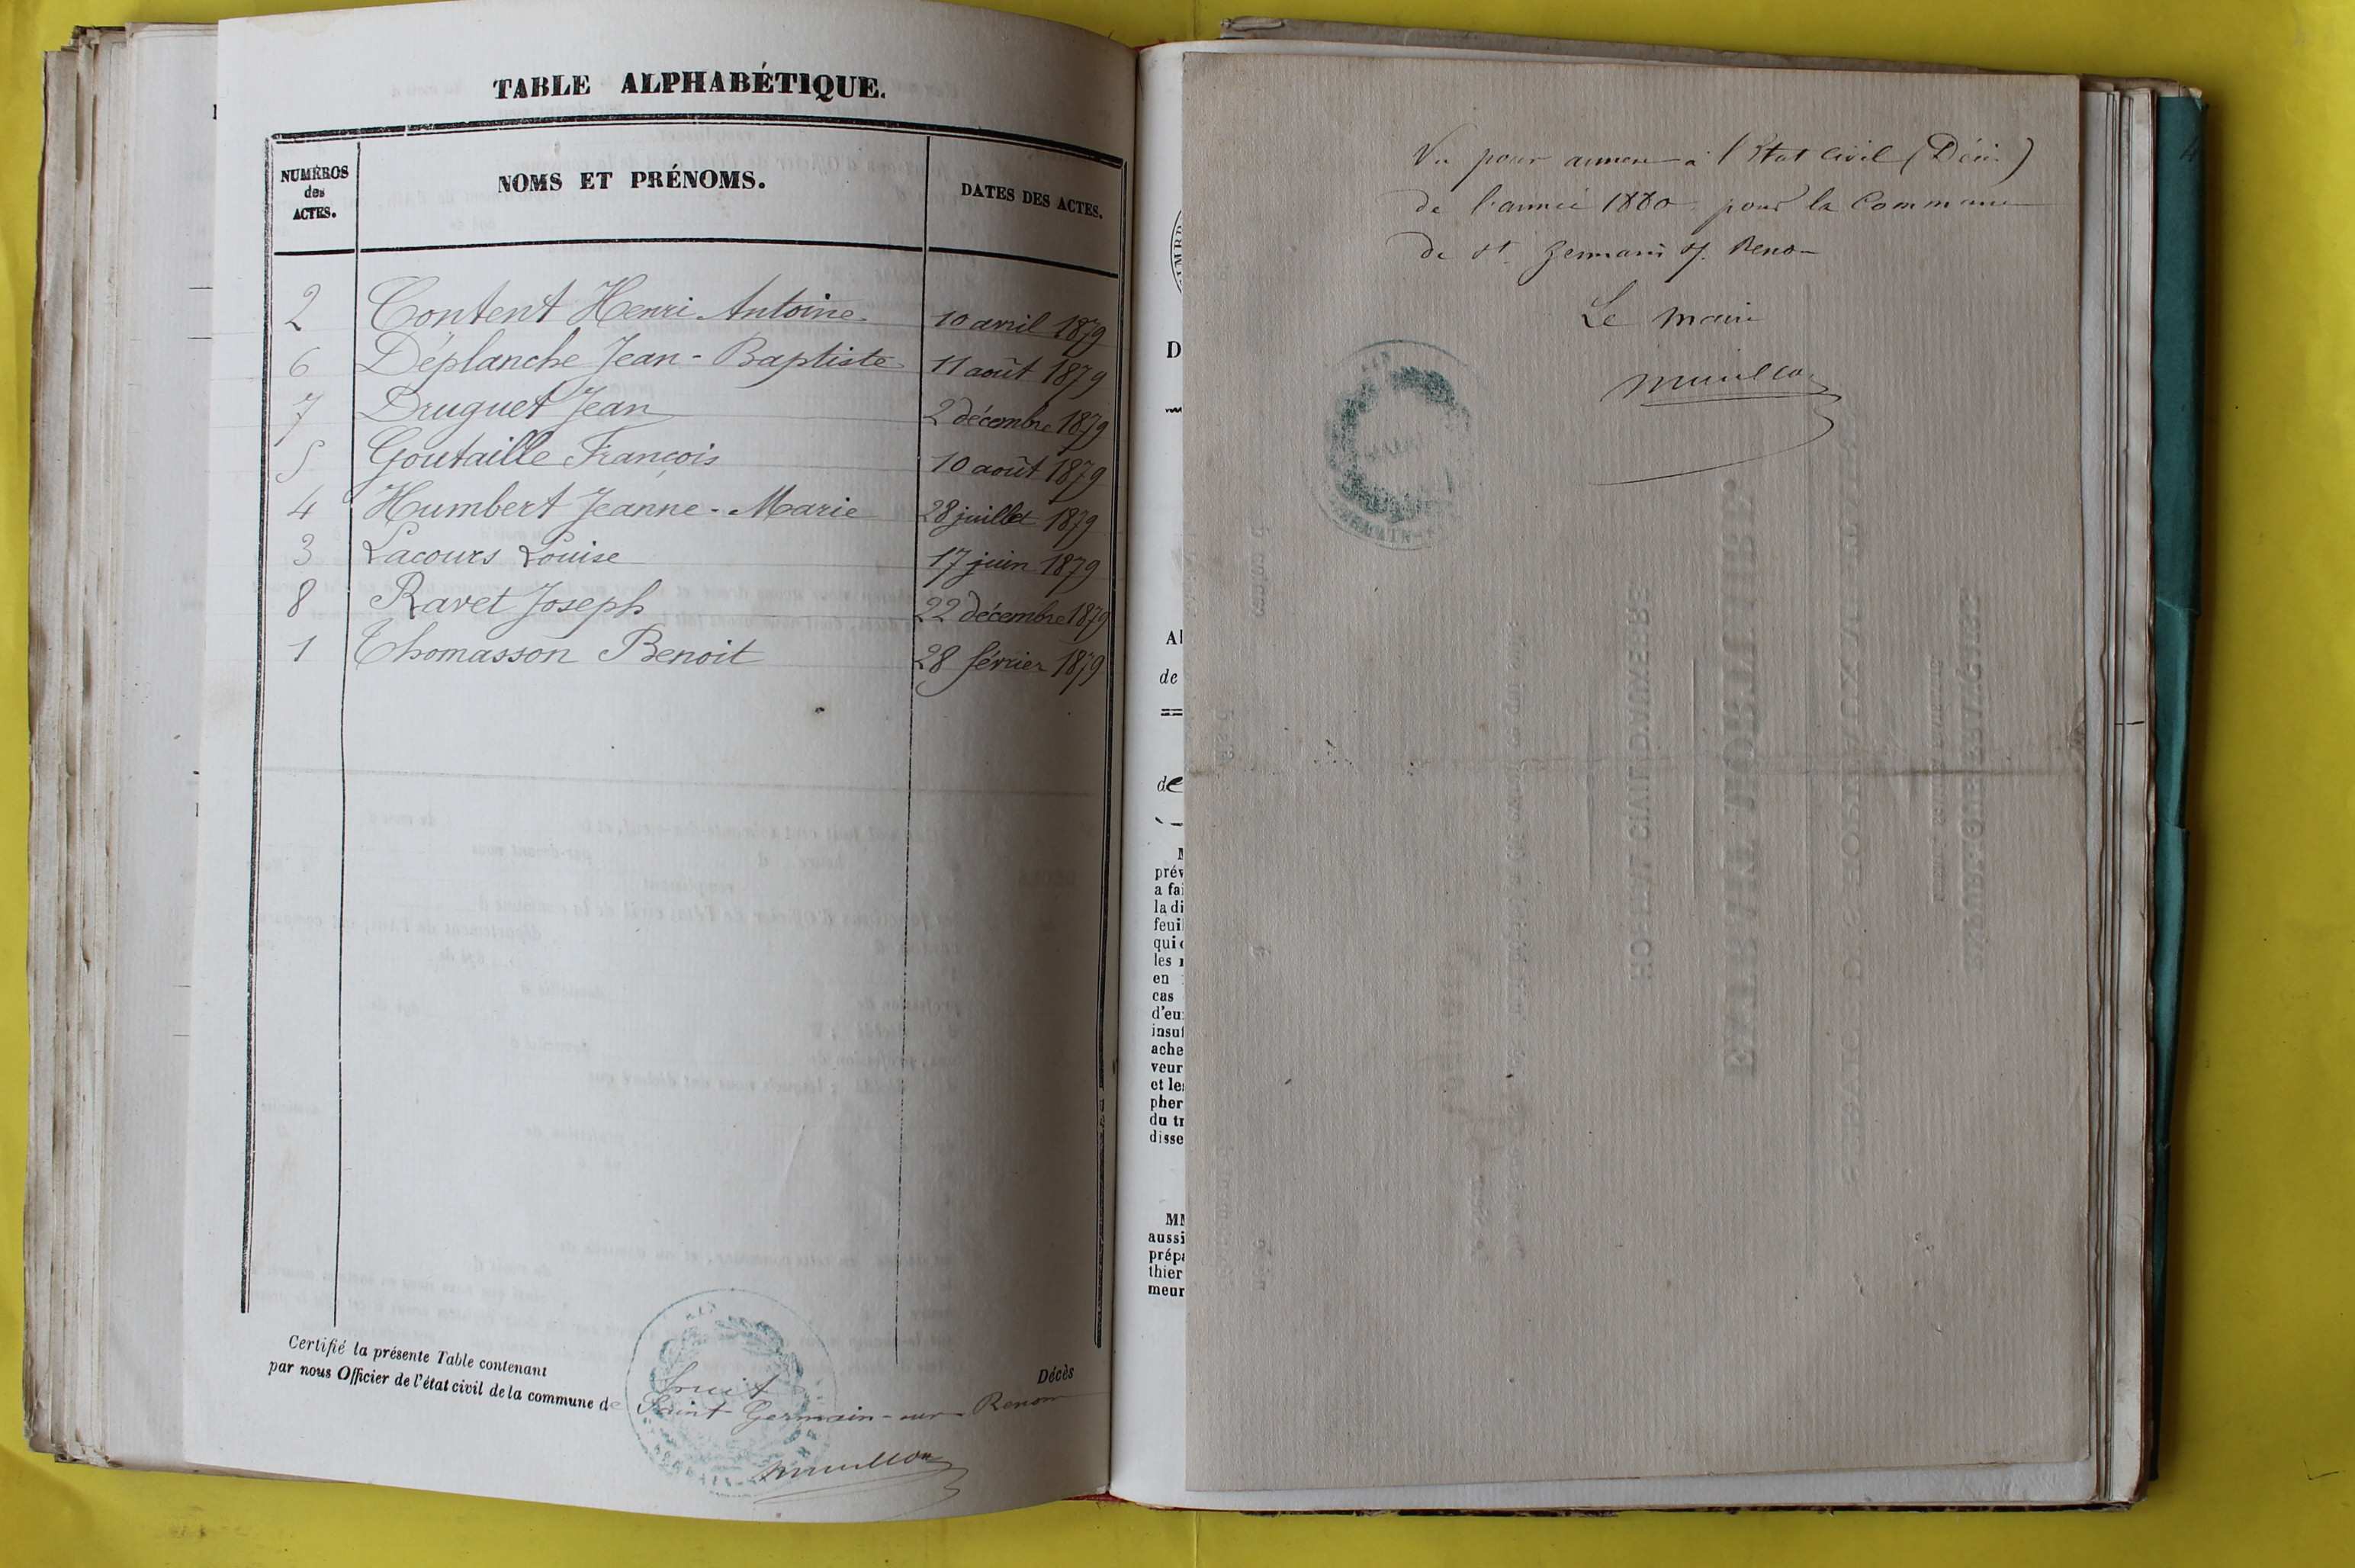 TABLE ALPHABÉTIQUE.
NUMÉROS
des
ACTES.
NOMS ET PRÉNOMS.
DATES DES ACTES.
2 Content Henri Antoine 10 avril 1879
6 Déplanche Jean-Baptiste 11 août 1879
7 Druguet Jean 2 décembre 1879
5 Goutaille François 10 août 1879
4 Humbert Jeanne-Marie 28 juillet 1879
3 Lacours Louise 17 juin 1879
8 Ravet Joseph 22 décembre 1879
1 Thomasson Benoit 28 février 1879
Certifié la présente Table contenant huit Décès
par nous Officier de l'état civil de la commune de Saint-Germain-sur-Renom
Vu pour annexe à l'Etat Civil (Décès)
de l'année 1880 pour la Commune
de St. Germain s/. Renon
Le Maire
D
Al
de
de
prév
a fai
la di
feuil
qui
les
en
cas
d'eu
insuf
ache
veur
et les
pher
du tr
disse
MM
aussi
prépa
thier
meur